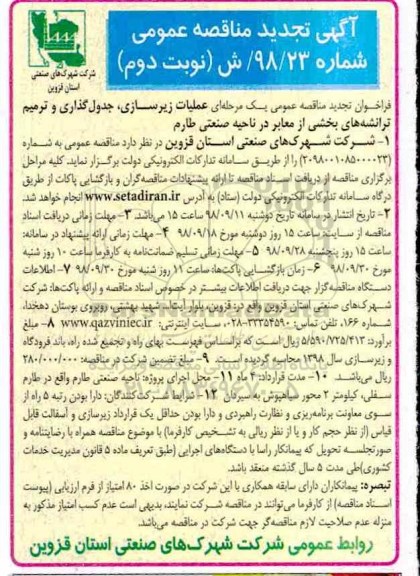 آگهی تجدید مناقصه عمومی
شماره ۹۸/۲۳/ ش (نوبت دوم)
شرکت شهرک‌های صنعتی
استان قزوین
فراخوان تجدید مناقصه عمومی یک مرحله‌ای عملیات زیرسازی، جدول‌گذاری و ترمیم
ترانشه‌های بخشی از معابر در ناحیه صنعتی طارم
۱- شرکت شهرک‌های صنعتی استان قزوین در نظر دارد مناقصه عمومی به شماره
(۲۰۹۸۰۰۱۰۸۵۰۰۰۰۲۳) را از طریق سامانه تدارکات الکترونیکی دولت برگزار نماید. کلیه مراحل
برگزاری مناقصه از دریافت اسناد مناقصه تا ارائه پیشنهادات مناقصه‌گران و بازگشایی پاکات از طریق
درگاه سامانه تدارکات الکترونیکی دولت (ستاد) به آدرس www.setadiran.ir انجام خواهد شد.
۲- تاریخ انتشار در سامانه تاریخ دوشنبه ۹۸/۰۹/۱۱ ساعت ۱۵ می‌باشد. ۳- مهلت زمانی دریافت اسناد
مناقصه از سایت: ساعت ۱۵ روز دوشنبه مورخ ۹۸/۰۹/۱۸ ۴- مهلت زمانی ارائه پیشنهاد در سامانه:
ساعت ۱۵ روز پنجشنبه ۹۸/۰۹/۲۸ ۵- مهلت زمانی تسلیم ضمانت‌نامه به کارفرما ساعت ۱۰ روز شنبه
مورخ ۹۸/۰۹/۳۰ ۶- زمان بازگشایی پاکت‌ها: ساعت ۱۱ روز شنبه مورخ ۹۸/۰۹/۳۰ ۷- اطلاعات
دستگاه مناقصه‌گزار جهت دریافت اطلاعات بیشتر در خصوص اسناد مناقصه و ارائه پاکت‌ها: شرکت
شهرک‌های صنعتی استان قزوین واقع در: قزوین، بلوار آیت‌ا... شهید بهشتی، روبروی بوستان دهخدا،
شماره ۱۶۶، تلفن تماس: ۳۳۳۵۴۵۹۰-۰۲۸، سایت اینترنتی: www.qazviniec.ir ۸- مبلغ
برآورد: ۵/۵۹۰/۷۲۵/۴۱۳ ریال است که براساس فهرست بهای راه و تجمیع شده راه، باند فرودگاه
و زیرسازی سال ۱۳۹۸ محاسبه گردیده است. ۹- مبلغ تضمین شرکت در مناقصه: ۲۸۰/۰۰۰/۰۰۰
ریال می‌باشد. ۱۰- مدت قرارداد: ۴ ماه ۱۱- محل اجرای پروژه: ناحیه صنعتی طارم واقع در طارم
سفلی، کیلومتر ۲ محور سیاهپوش به سیردان ۱۲- شرایط شرکت‌کنندگان: دارا بودن رتبه ۵ راه از
سوی معاونت برنامه‌ریزی و نظارت راهبردی و دارا بودن حداقل یک قرارداد زیرسازی و آسفالت قابل
قیاس (از نظر حجم کار و یا از نظر ریالی به تشخیص کارفرما) با موضوع مناقصه همراه با رضایتنامه و
صورتجلسه تحویل که پیمانکار راسا با دستگاه‌های اجرایی (طبق تعریف ماده ۵ قانون مدیریت خدمات
کشوری) طی مدت ۵ سال گذشته منعقد باشد.
تبصره: پیمانکاران دارای سابقه همکاری با این شرکت در صورت اخذ ۸۰ امتیاز از فرم ارزیابی (پیوست
اسناد مناقصه) از کارفرما می‌توانند در مناقصه شرکت نمایند، بدیهی است عدم کسب امتیاز مذکور به
منزله عدم صلاحیت لازم مناقصه‌گر جهت شرکت در مناقصه می‌باشد.
روابط عمومی شرکت شهرک‌های صنعتی استان قزوین